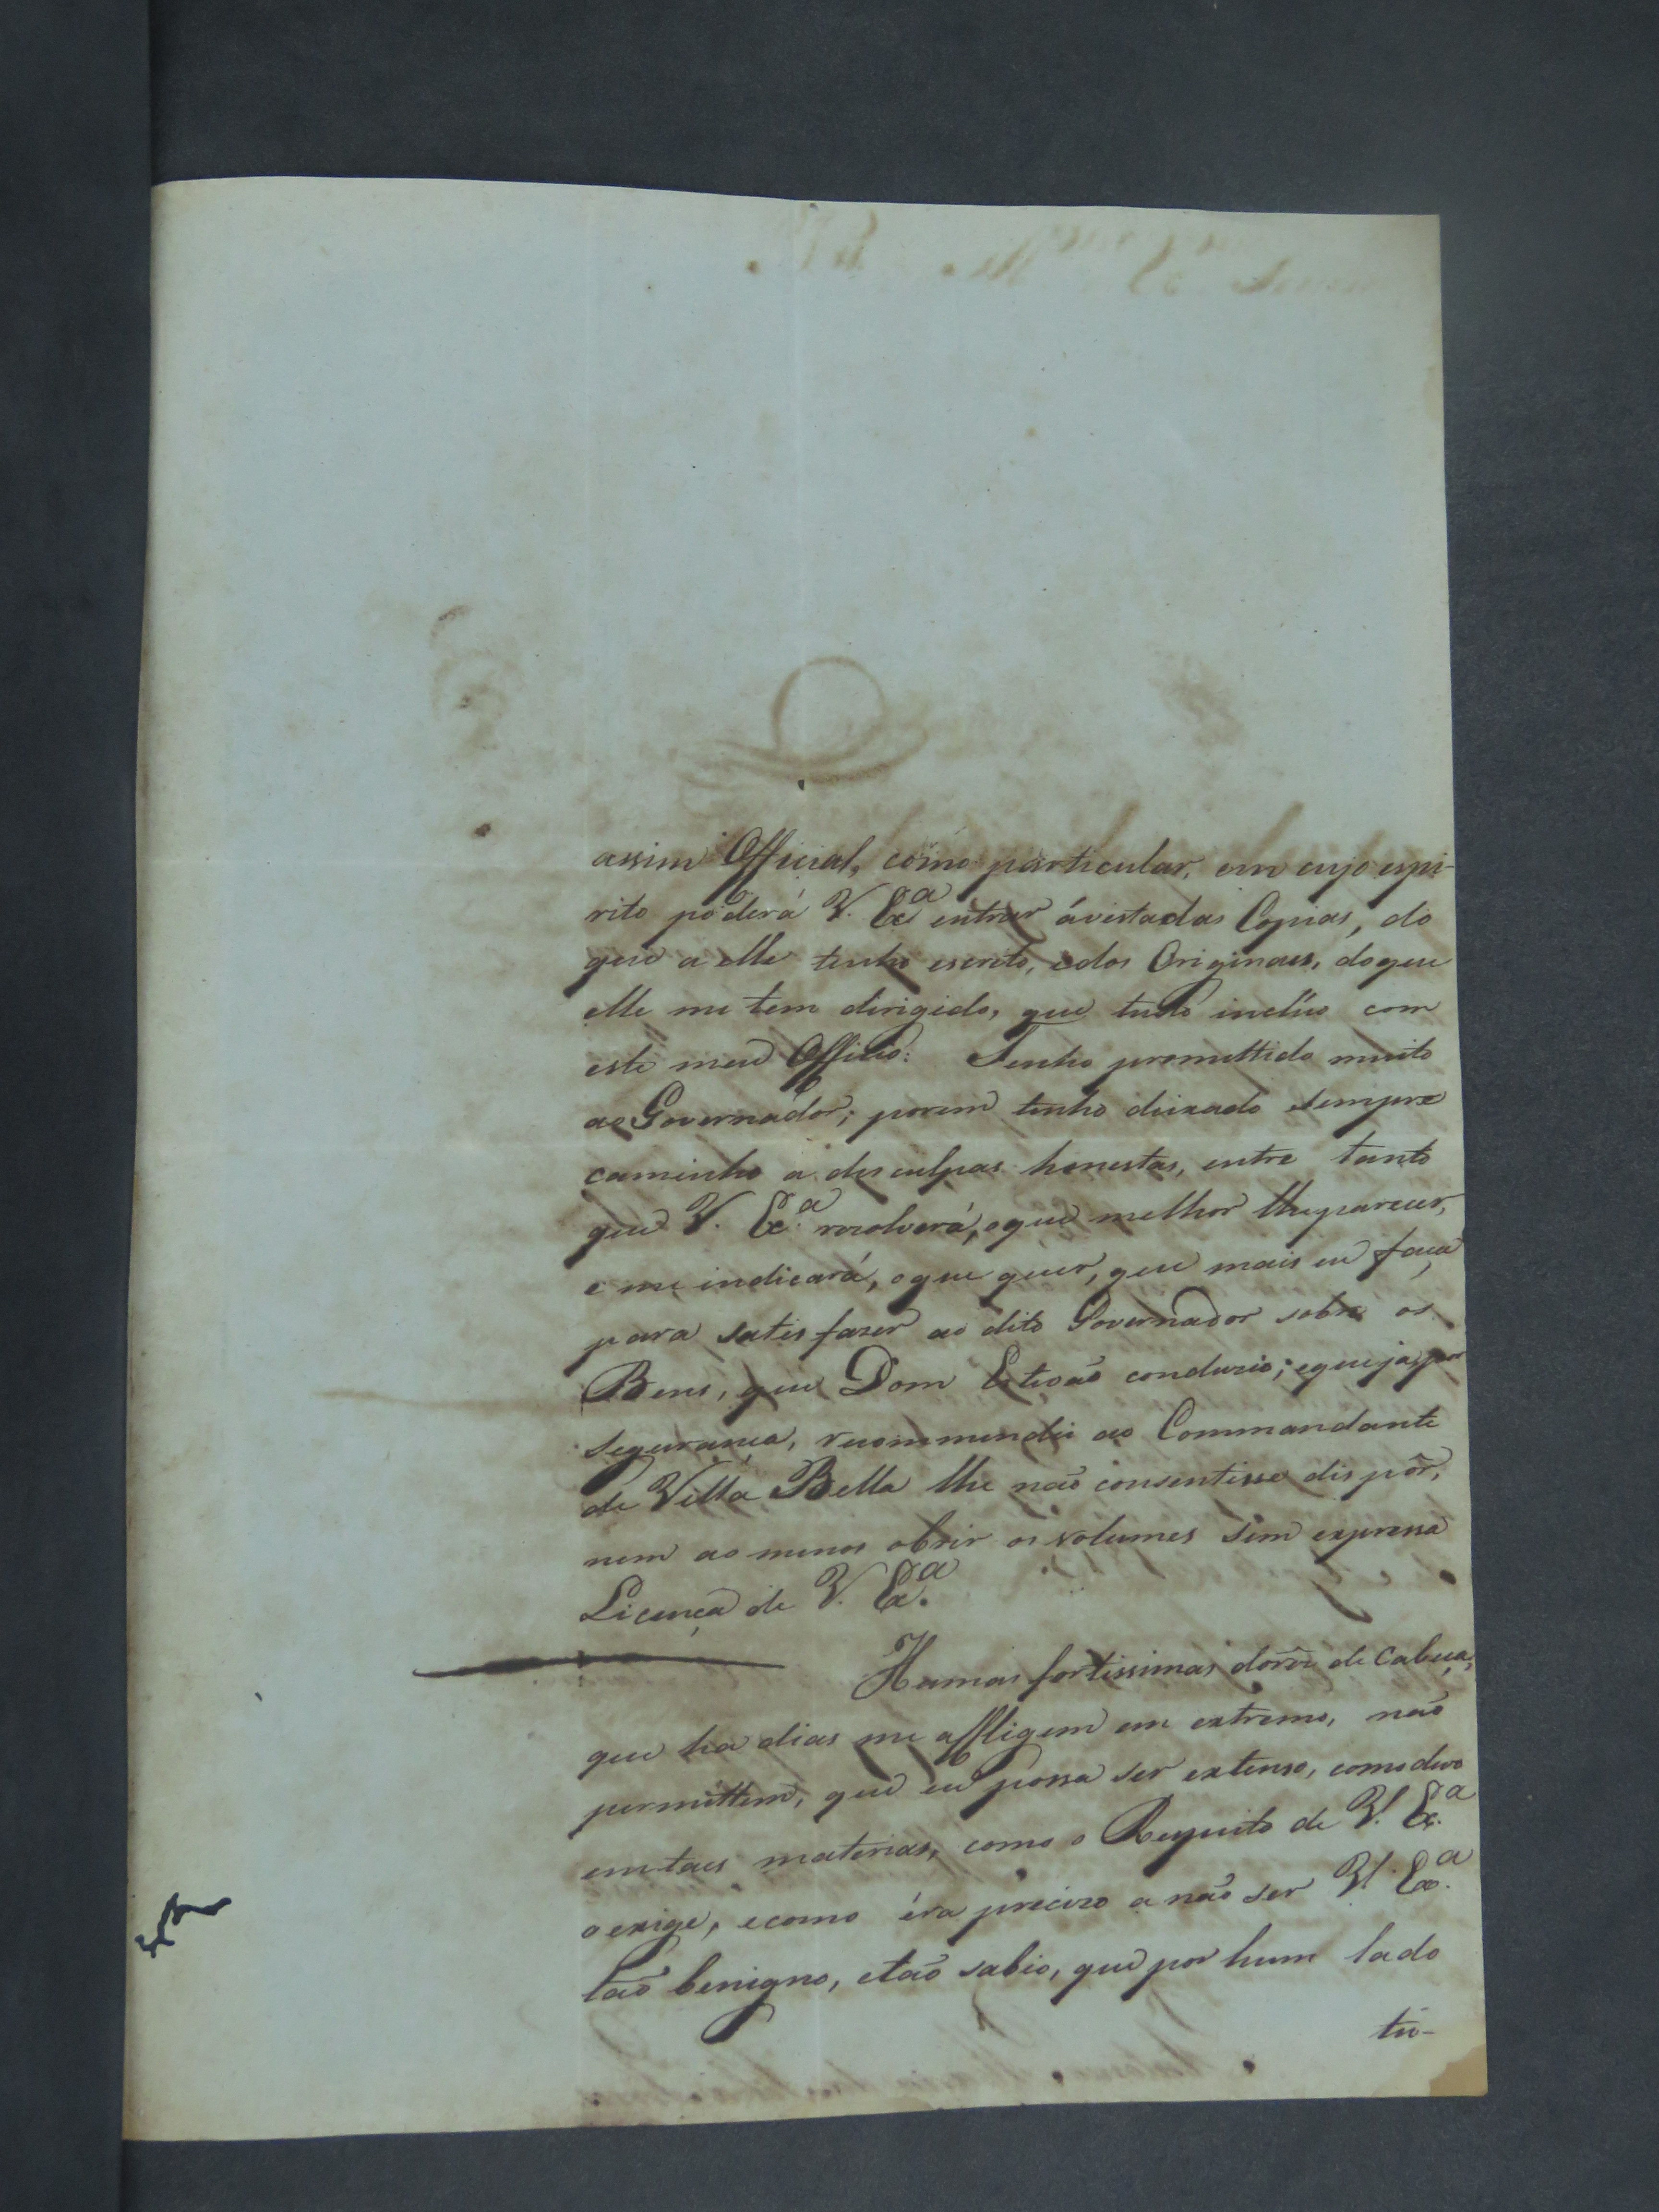 assim Official, como particular, em cujo espi-
rito poderá V. Ex.ª entrar ávistadas Copias, do
que a elle tenho escrito, edos Originaes, doque
elle me tem dirigido, que tudo inclúo com
este meu Officio. Tenho promettido muito
ao Governador; porem tenho deixado sempre
caminho a desculpas honestas, entre tanto
que V. Ex.ª resolverá, oque melhor lheparecer,
e me indicará, oque quer, que mais eu faça
para satisfazer ao dito Governador sobre os
Bens, que Dom Estevaõ conduzio; equeja, por
segurança, recommendei ao Commandante
de Villa Bella lhe naõ consentisse dispôr,
nem ao menos abrir os volumes sem expressa
Licença de V. Ex.ª
Humas fortissimas dores de Cabeça,
que ha dias me affligem em extremo, naõ
permittem, que eu possa ser extenso, comodevo
emtaes materias, como o Respeito de V. Ex.ª
oexige, ecomo éra precizo a naõ ser V. Ex.ª
taõ benigno, etaõ sabio, que por hum lado
tu-